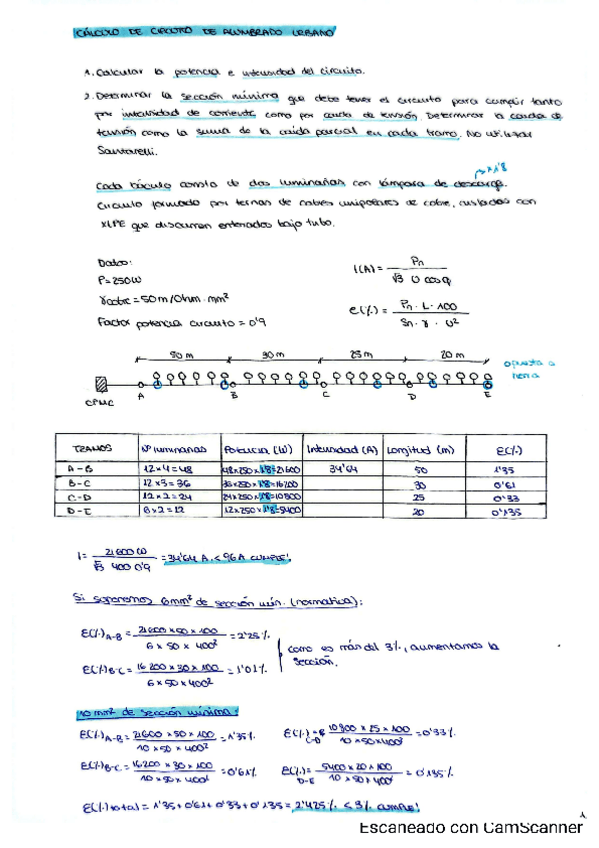 CÁLCULO DE CIRCUITO DE ALUMBRADO URBANO
1. Calcular la potencia e intensidad del circuito.
2. Determinar la sección mínima que debe tener el circuito para cumplir tanto
por intensidad de corriente como por caída de tensión. Determinar la caída de
tensión como la suma de la caída parcial en cada tramo. No utilizar
Santarelli.
→ x1'8
Cada báculo consta de dos luminarias con lámpara de descarga.
Circuito formado por ternas de cables unipolares de cobre, aislados con
XLPE que discurren enterrados bajo tubo.
Datos:
P=250W
γcobre = 50 m/Ohm·mm²
Factor potencia circuito = 0'9
I(A) = Pn / √3 U cosφ
e(%) = Pn · L · 100 / Sn · γ · U²
50 m 30 m 25 m 20 m
opuesta a
tierra
CPMC A B C D E
TRAMOS Nº luminarias Potencia (W) Intensidad (A) Longitud (m) E(%)
A-B 12x4=48 48x250x1'8=21600 34'64 50 1'35
B-C 12x3=36 36x250x1'8=16200 30 0'61
C-D 12x2=24 24x250x1'8=10800 25 0'33
D-E 6x2=12 12x250x1'8=5400 20 0'135
I = 21600 W / √3 400 0'9 = 34'64 A. < 96A CUMPLE!
Si suponemos 6mm² de sección mín. (normativa):
E(%)A-B = 21600 x 50 x 100 / 6 x 50 x 400² = 2'25%
E(%)B-C = 16200 x 30 x 100 / 6 x 50 x 400² = 1'01%
como es más del 3%, aumentamos la
sección.
10 mm² de sección mínima:
E(%)A-B = 21600 x 50 x 100 / 10 x 50 x 400² = 1'35% E(%)C-D = 10800 x 25 x 100 / 10 x 50 x 400² = 0'33%
E(%)B-C = 16200 x 30 x 100 / 10 x 50 x 400² = 0'61% E(%)D-E = 5400 x 20 x 100 / 10 x 50 x 400² = 0'135%
E(%)total = 1'35 + 0'61 + 0'33 + 0'135 = 2'425% < 3% CUMPLE!
Escaneado con CamScanner